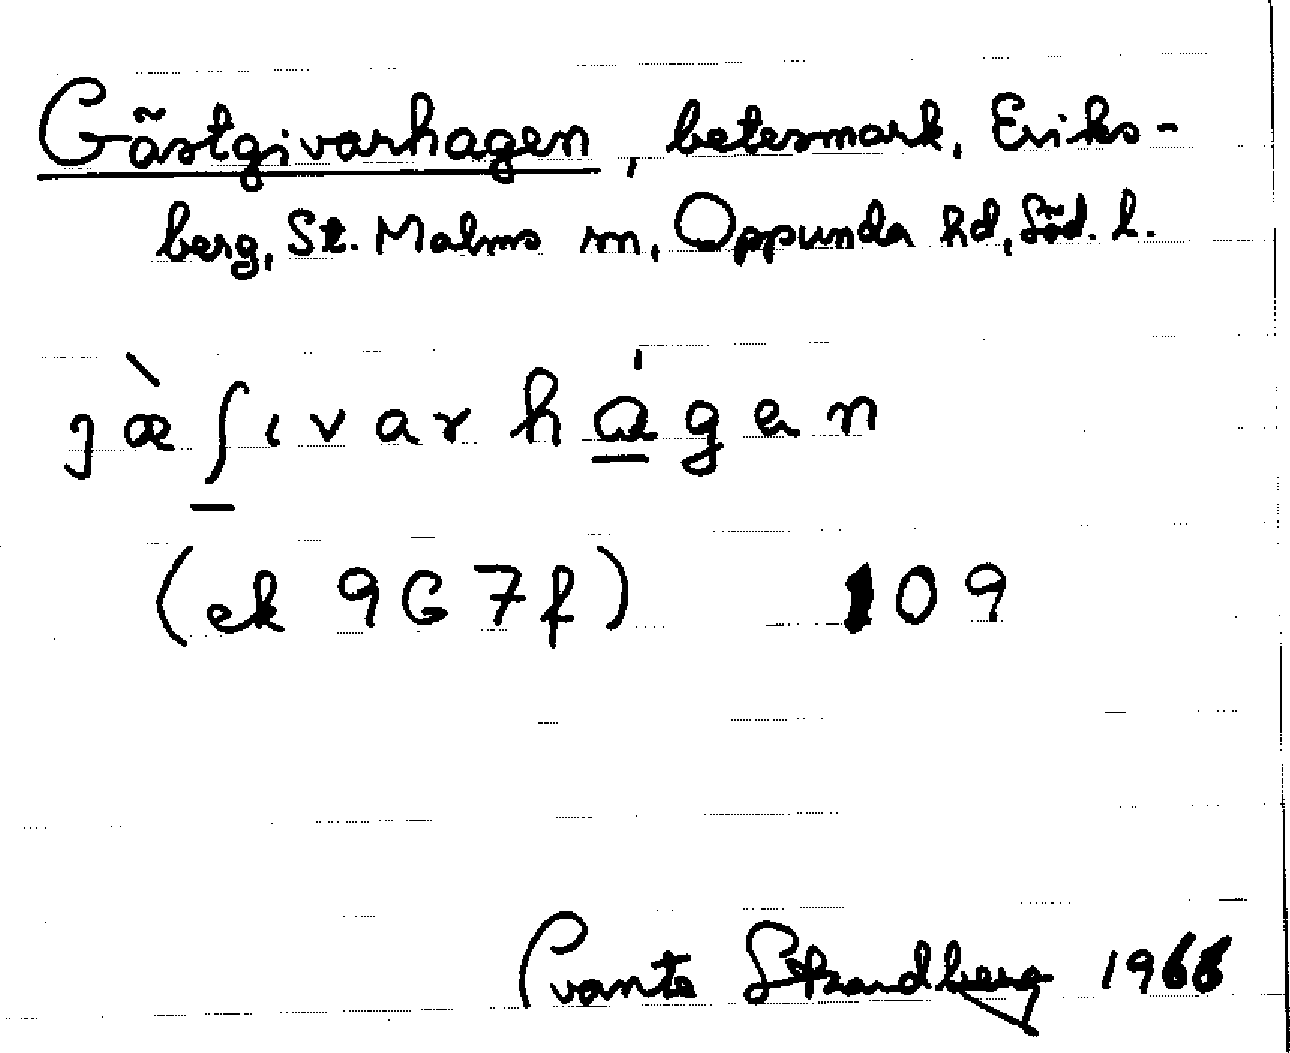 Gästgivarhagen, betesmark, Eriks-
berg, St. Malms sn, Oppunda hd, Söd. l.
jæ̀ʃıvarhágen
(ek 9G7f) 109
Svante Strandberg 1966